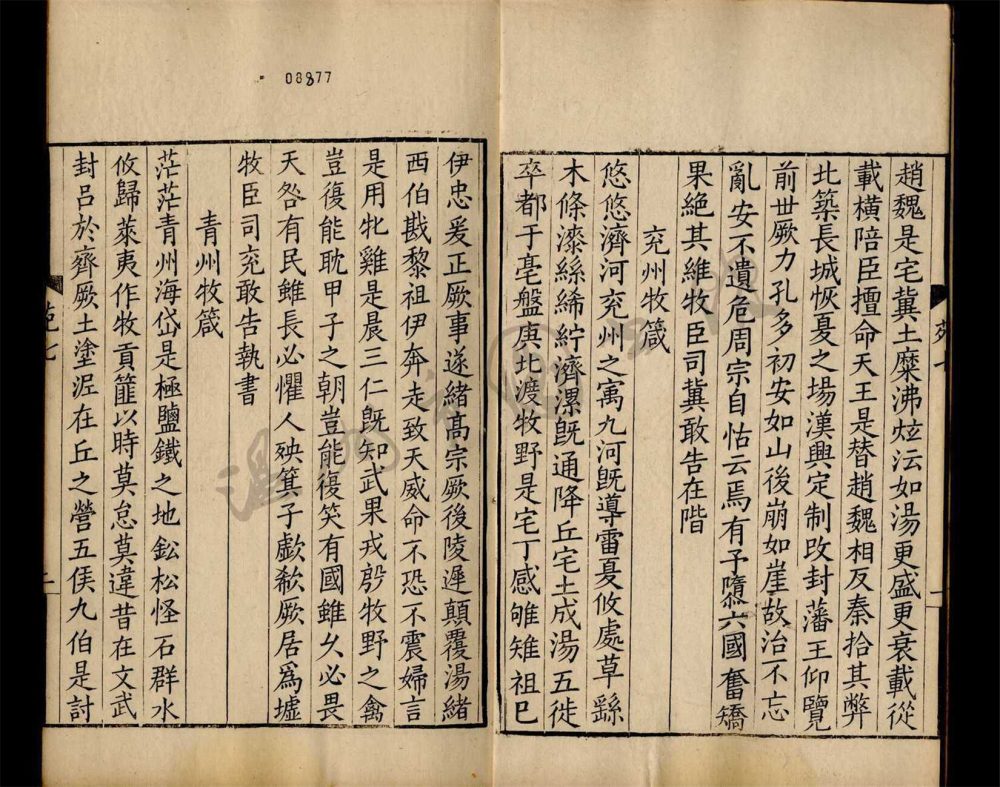 08877
趙魏是宅冀土麋沸炫沄如湯更盛更衰載從
載橫陪臣擅命天王是替趙魏相反秦拾其弊
北築長城恢夏之場漢興定制改封藩王仰覽
前世厥力孔多初安如山後崩如崖故治不忘
亂安不遺危周宗自怙云焉有予隳六國奮矯
果絕其維牧臣司冀敢告在階
兖州牧箴
悠悠濟河兖州之寓九河旣導雷夏攸處草繇
木條漆絲絺紵濟漯旣通降丘宅土成湯五徙
卒都于亳盤庚北渡牧野是宅丁感雊雉祖巳
伊忠爰正厥事遂緒髙宗厥後陵遲顛覆湯緒
西伯戡黎祖伊奔走致天威命不恐不震婦言
是用牝雞是晨三仁旣知武果戎殷牧野之禽
豈復能耽甲子之朝豈能復笑有國雖久必畏
天咎有民雖長必懼人殃箕子歔欷厥居爲墟
牧臣司兖敢告執書
青州牧箴
茫茫青州海岱是極鹽鐵之地鈆松怪石群水
攸歸萊夷作牧貢篚以時莫怠莫違昔在文武
封呂於齊厥土塗泥在丘之營五侯九伯是討
苑七
二